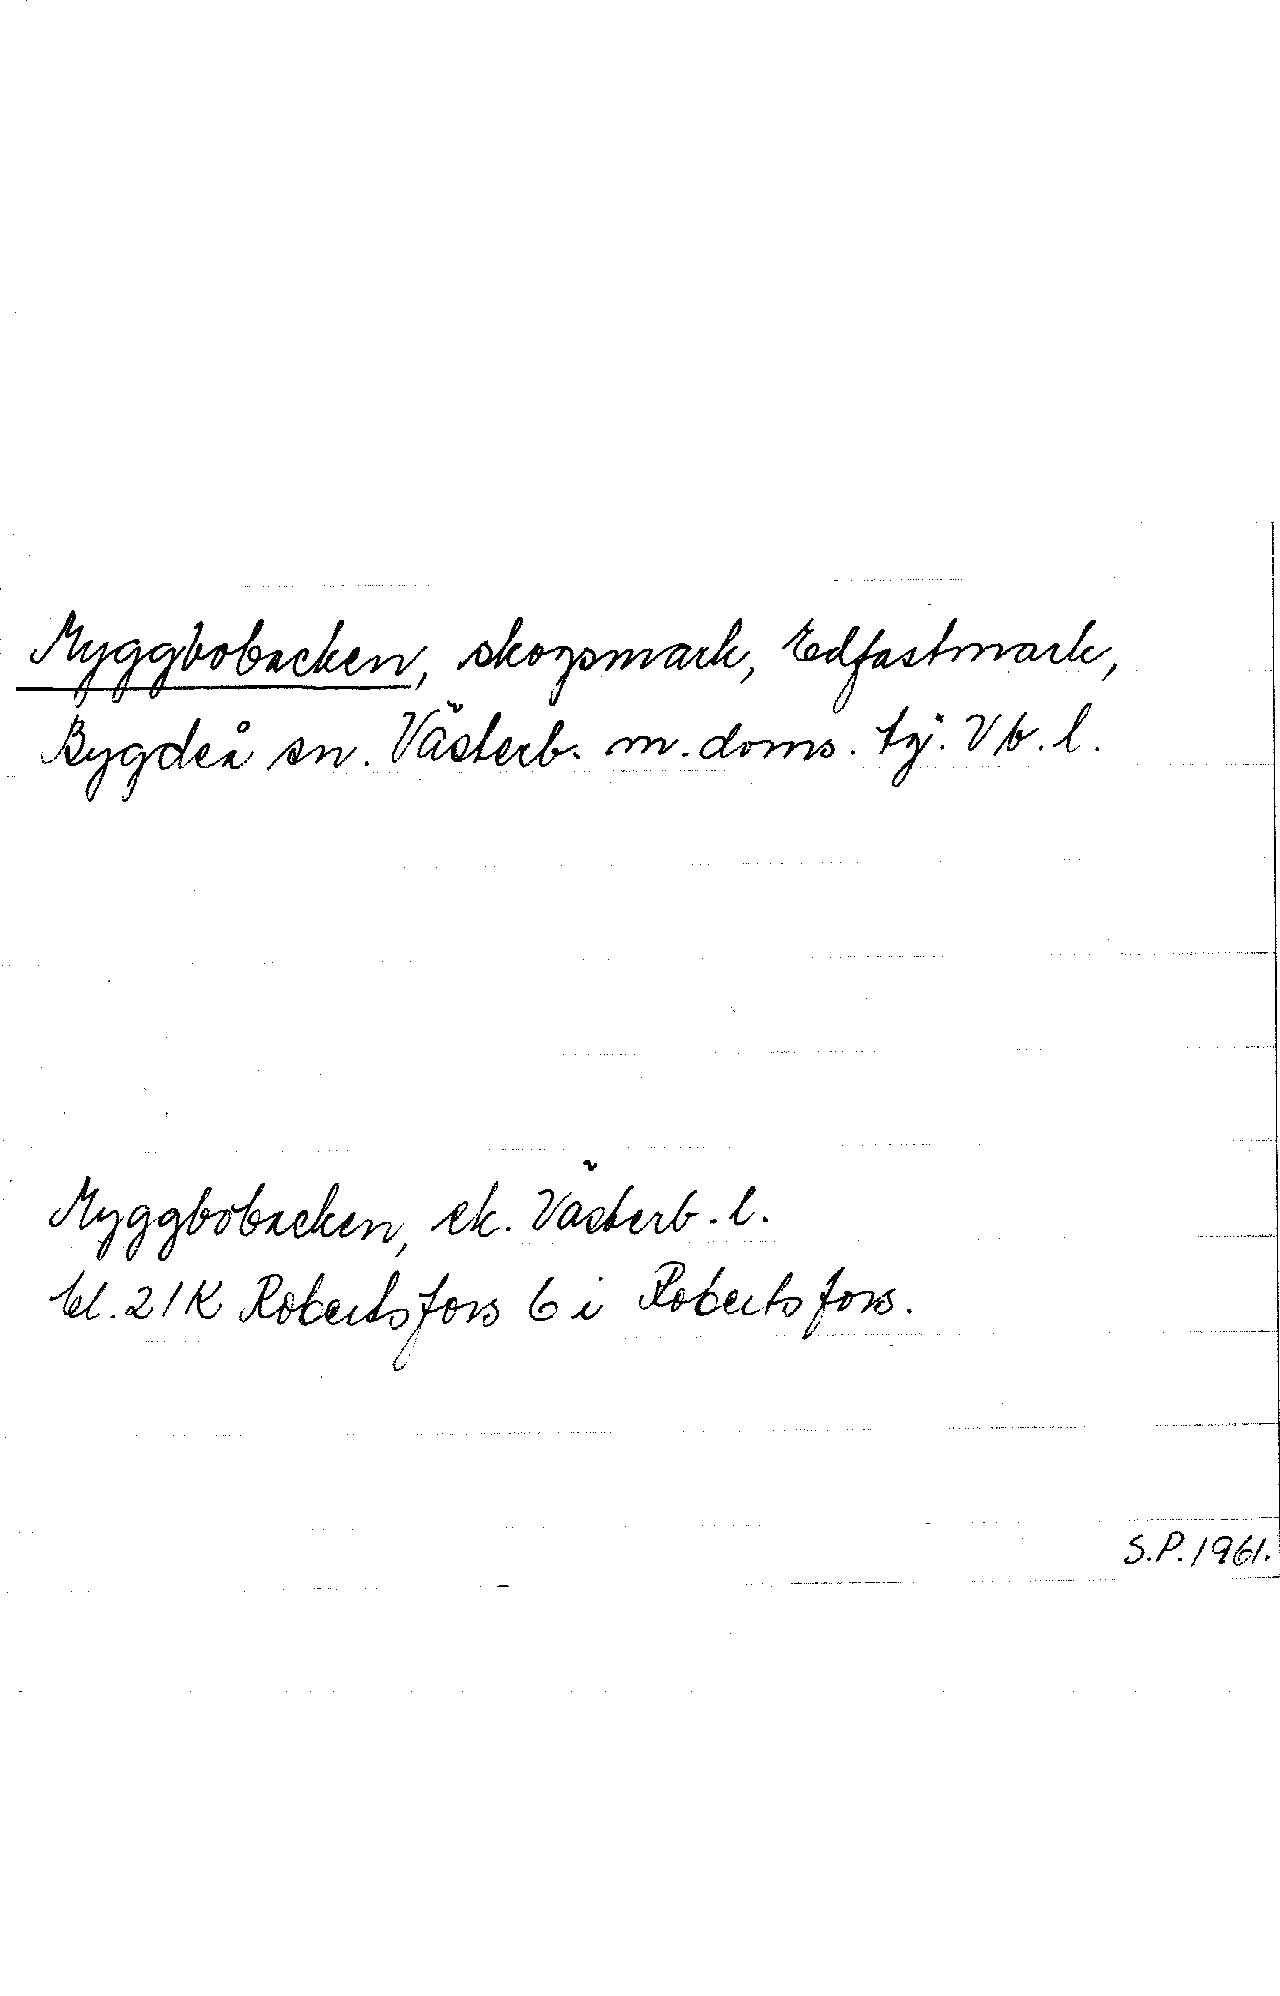 Myggbobacken, skogsmark, Edfastmark,
Bygdeå sn. Västerb. m. doms. tj. Vb. l.
Myggbobacken, ek. Västerb. l.
bl. 21K Robertsfors 6 i Robertsfors.
S.P. 1961.